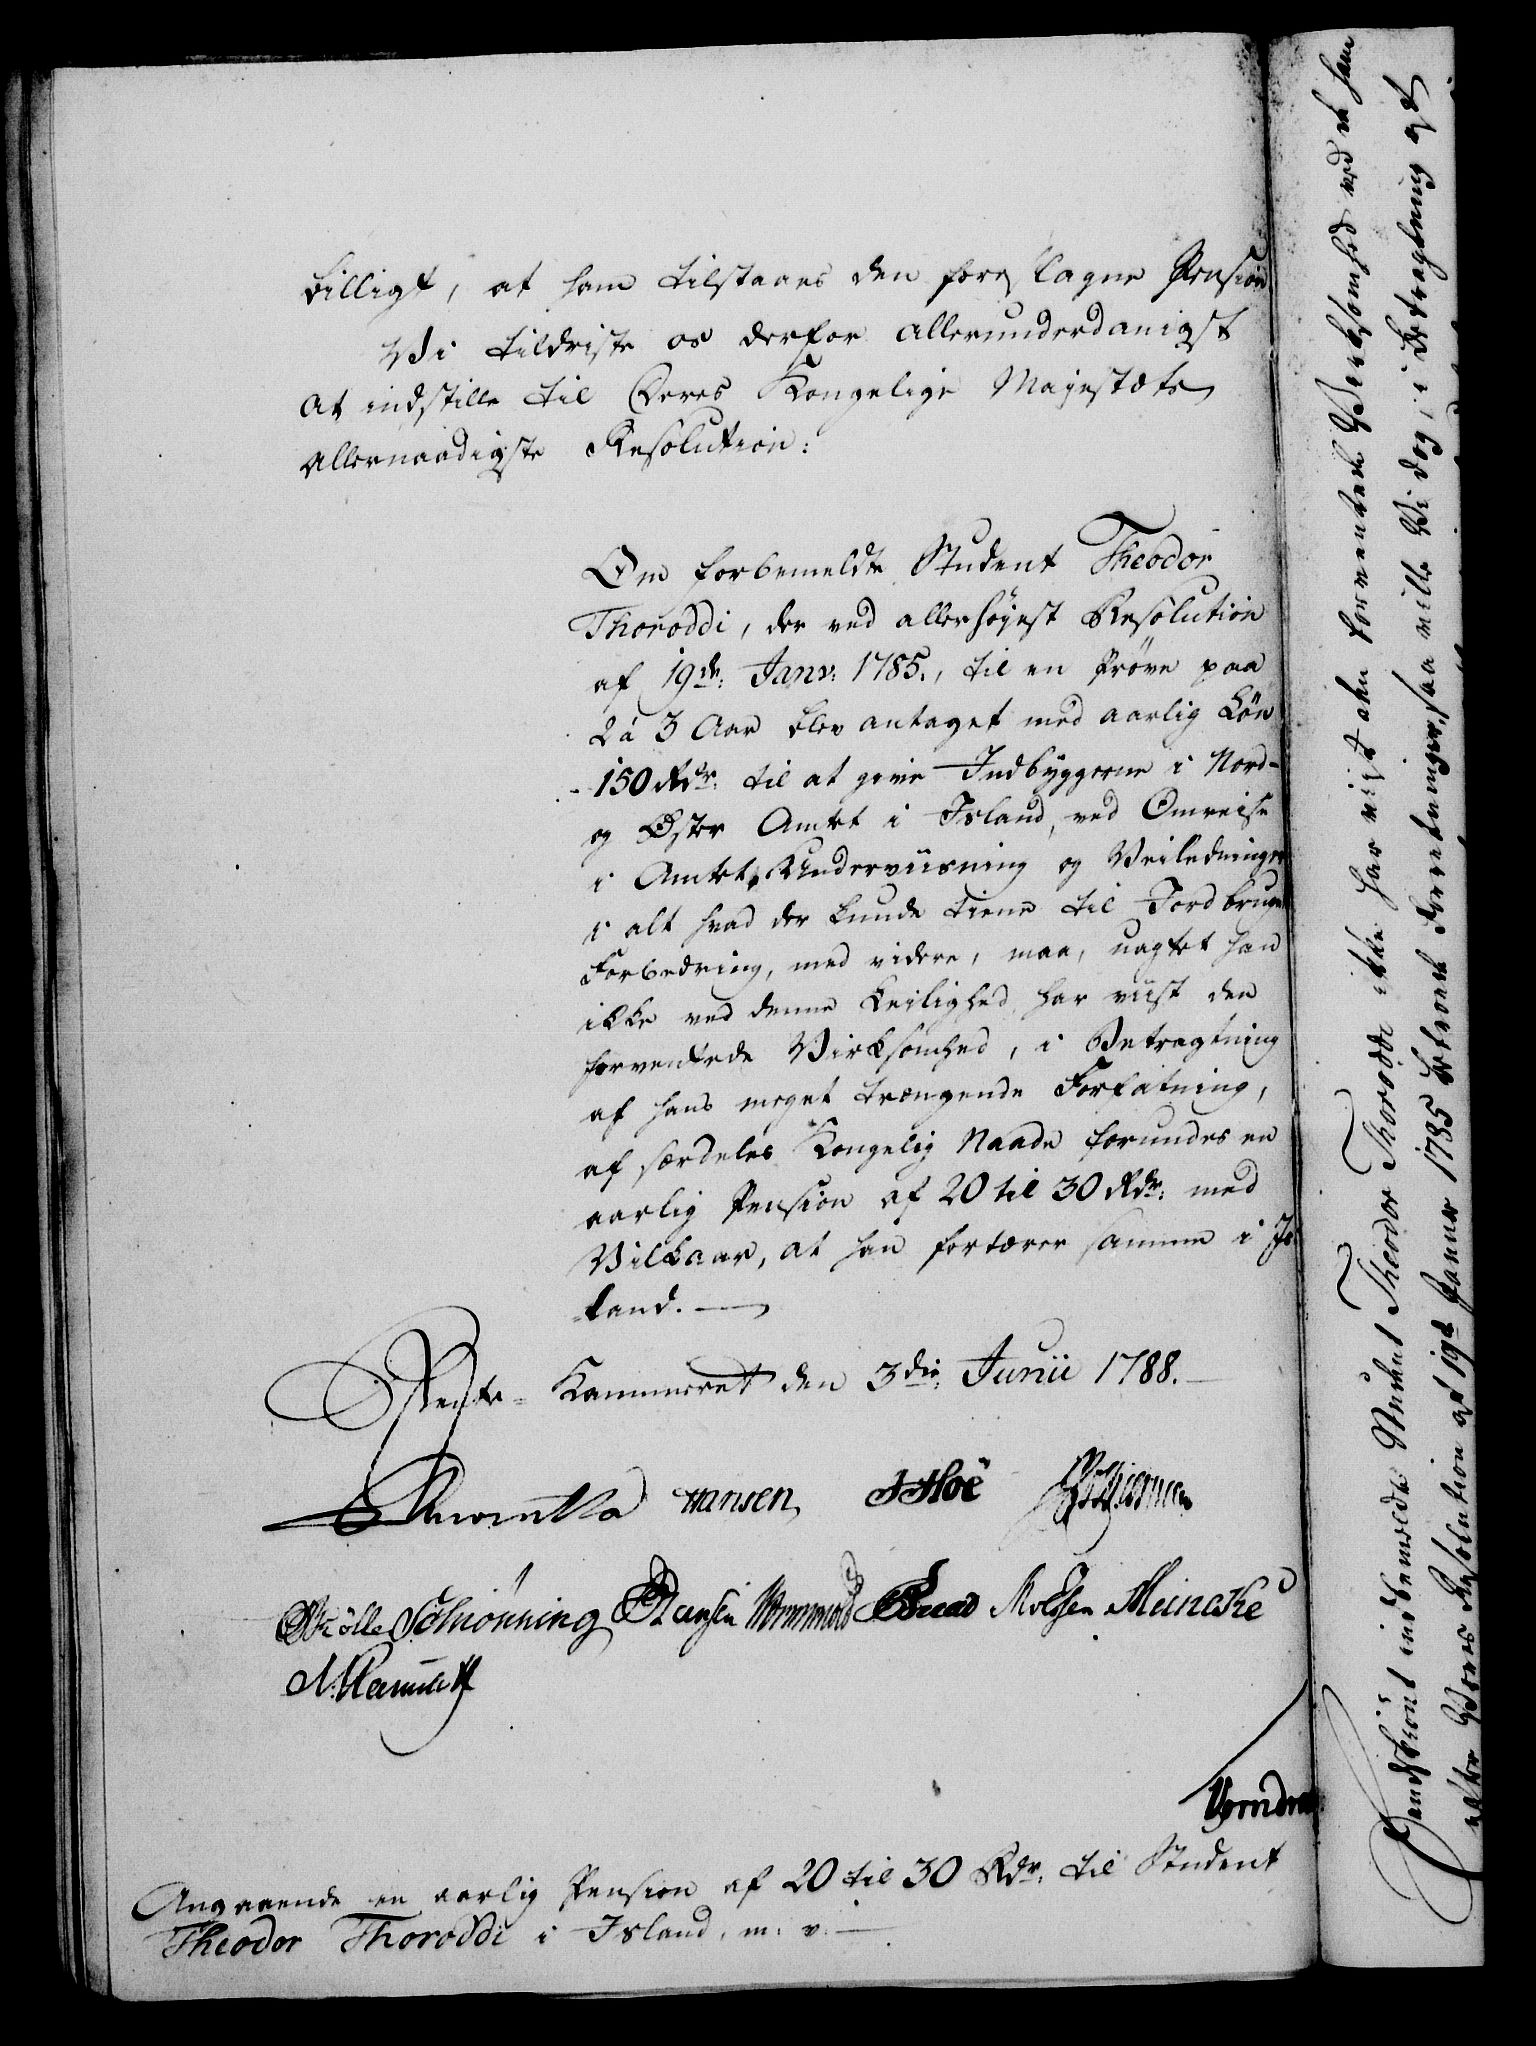 billigt, at ham tilstaaes den foreslagne Pension
Vi tildriste os derfor allerunderdanigst
at indstille til Deres Kongelige Majestæts
allernaadigste Resolution:
Om forbemeldte Student Theodor
Thoroddi, der ved allerhøyest Resolution
af 19de Janv: 1785., til en Prøve paa
2 à 3 Aar blev antaget med aarlig Løn
150 Rdr: til at give Indbyggerne i Nord-
og Øster Amtet i Island, ved Omreise
i Amtet, Underviisning og Veiledninger
i alt hvad der kunde tiene til Jordbrugets
Forbedring, med videre, maa, uagtet han
ikke ved denne Leilighed har viist den
forventede Virksomhed, i Betragtning
af hans meget trængende Forfatning,
af særdeles Kongelig Naade forundes en
aarlig Pension af 20 til 30 Rdr: med
Vilkaar, at han fortærer samme i Is-
=land.
Rente-Kammeret den 3die Junii 1788.
Hansen JHoë
Schiønning Hansen Wormskiold Meincke
Angaaende en aarlig Pension af 20 til 30 Rdr. til Student
Theodor Thoroddi i Island, m: v:
Endskiønt indbemeldte Student Theodor Thoroddi ikke har viist den forventede Virksomhed ved de ham
efter Vores Resolution af 19de Januar 1785 betroede Forretninger, saa ville Vi dog, i Betragtning af